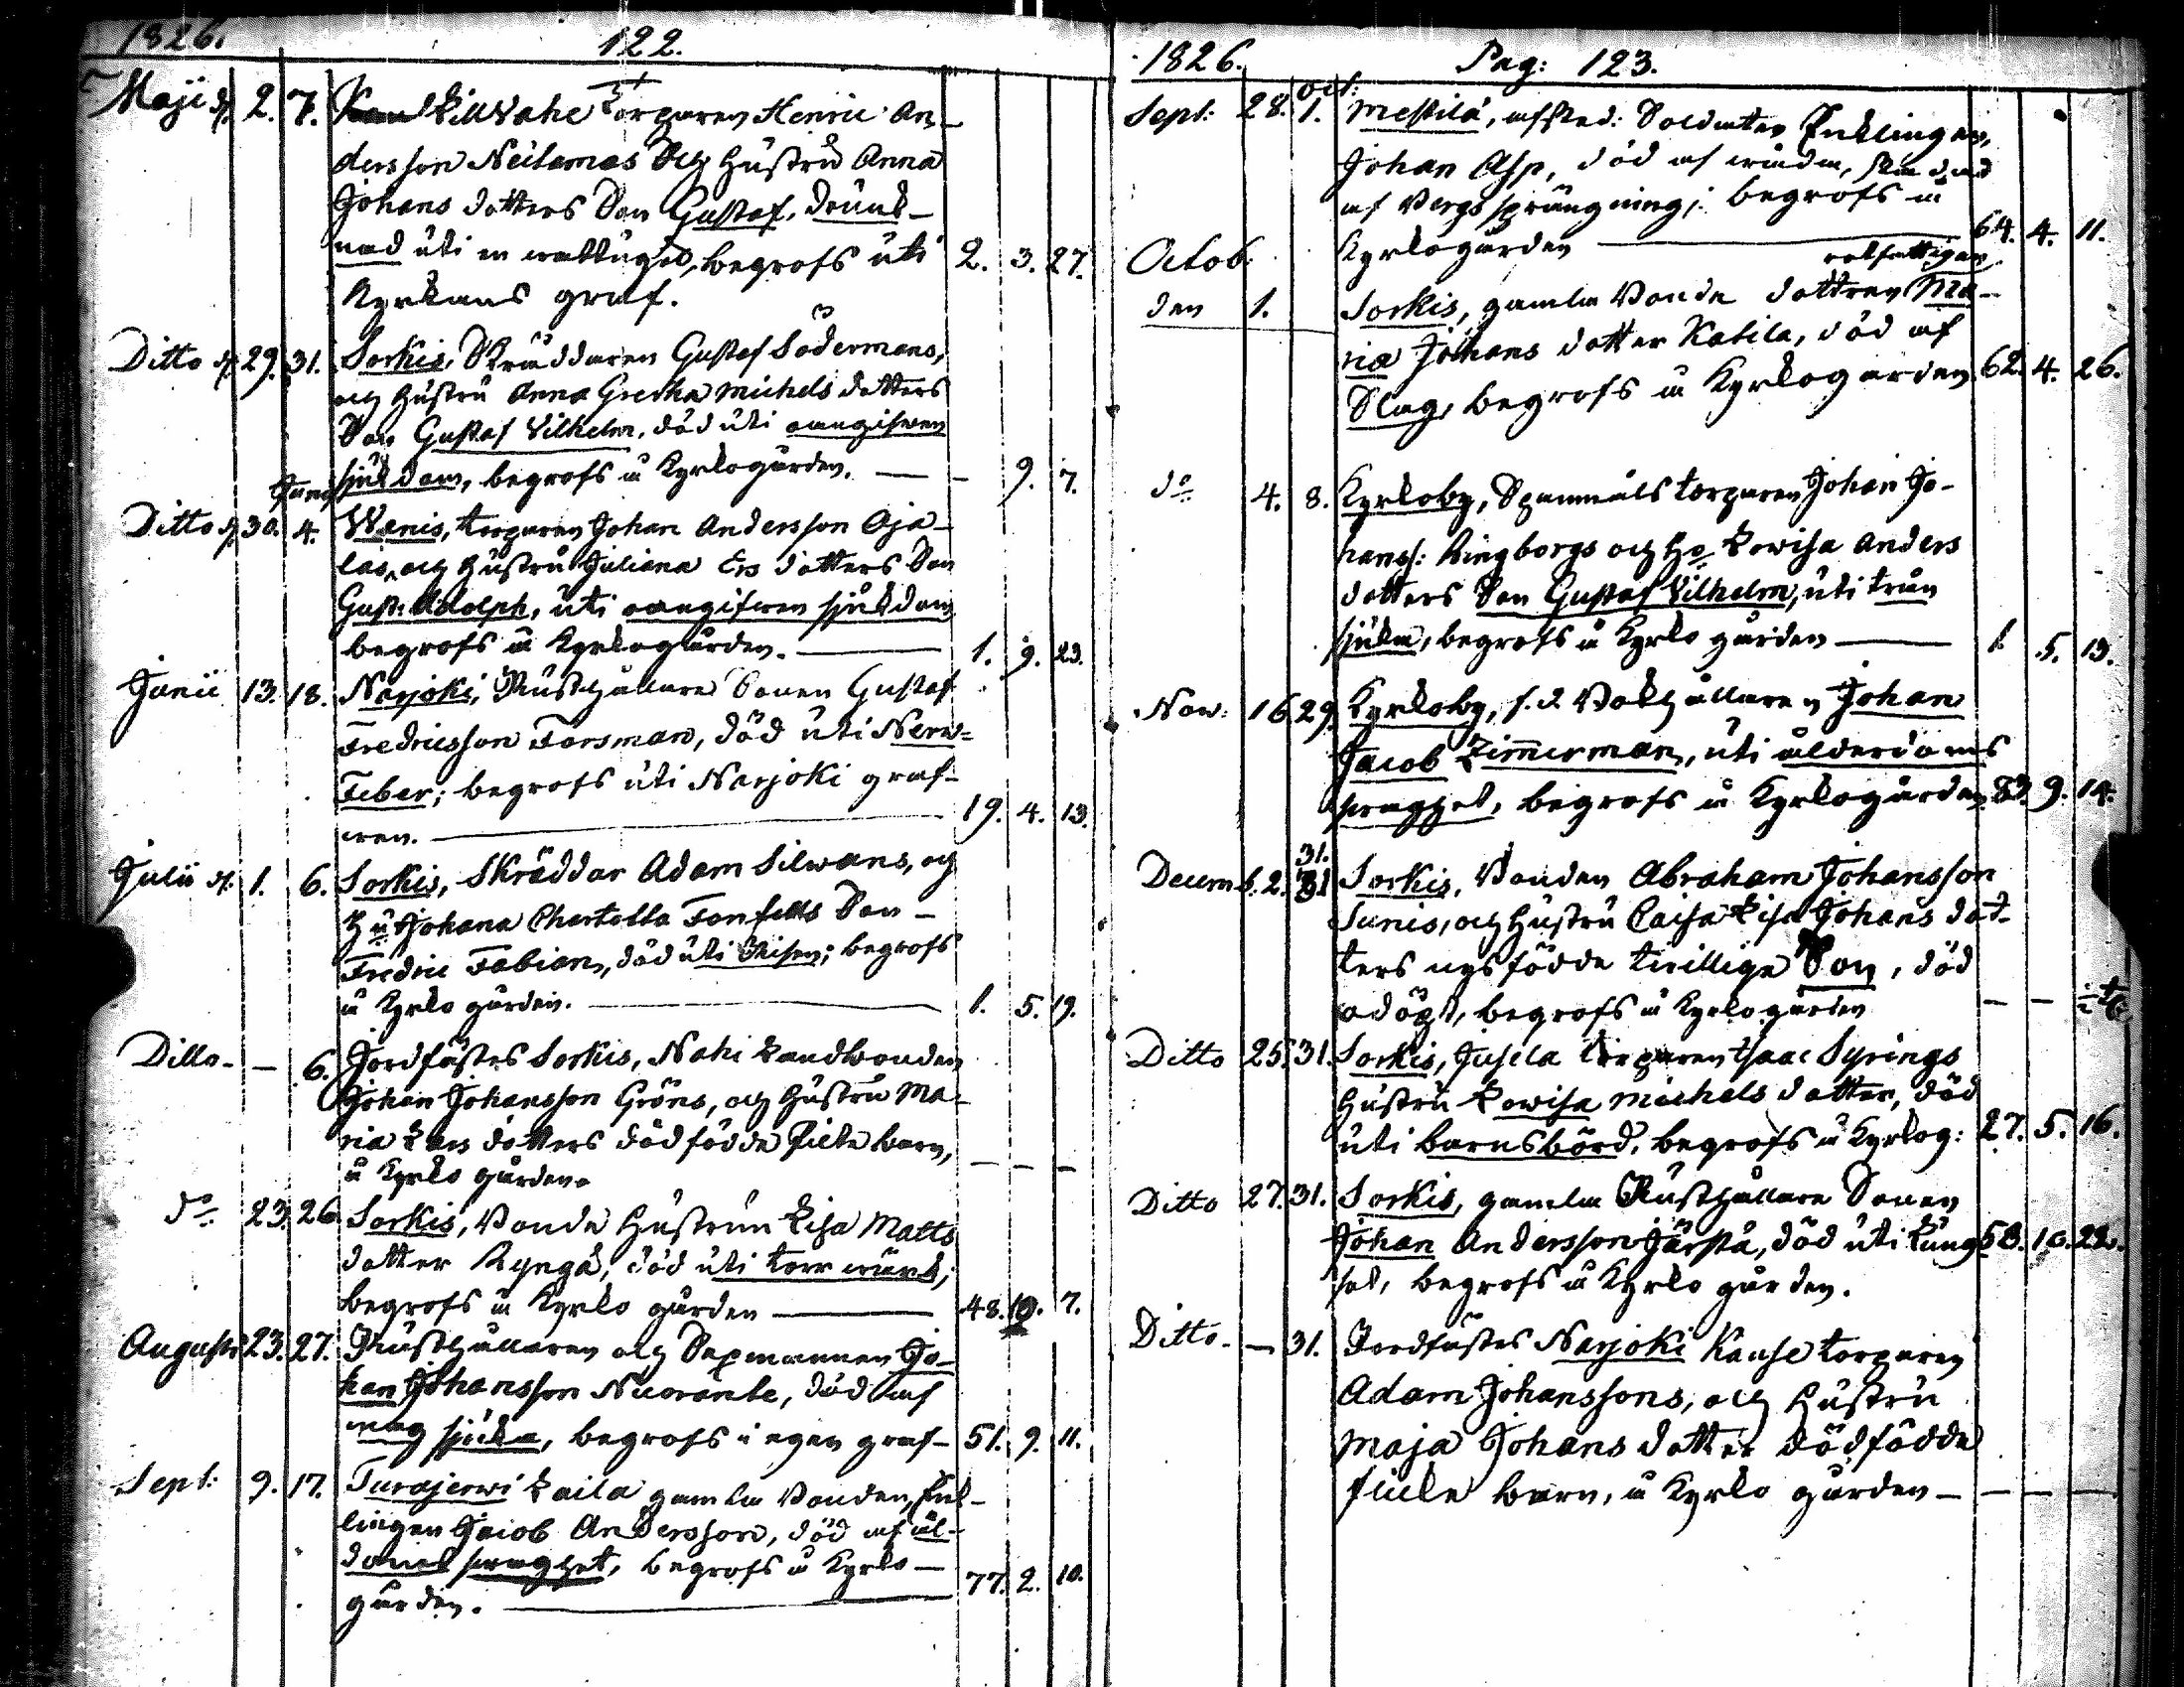 1826. 122.
Maji d. 2. 7. Killvahe Torparen Henric An-
dersson Neilamas och Hustru Anna
Johans dotters Son Gustaf, drunk-
nad uti en begrofs uti 2. 3. 27.
Kyrkans graf.
Ditto d. 29. 31. Sorkis, Skräddaren Gustaf Södermans,
och Hustru Anna Greta Michels dotters
Son Gustaf Vilhelm, död uti oangifwen
sjukdom, begrofs å Kyrkogården. — - 9. 7.
Junii
Ditto d. 30. 4. Wanis, torparen Johan Andersson Oja-
las, och Hustru Juliana Ers dotters Son
Gust: Adolph, uti oangifwen sjukdom
begrofs å Kyrkogården. — 1. 9. 23.
Junii 13. 18. Narjoki, Rusthållare Sonen Gustaf
Fredricsson Forsman, död uti Nerw-
Feber; begrofs uti Narjoki graf-
wen. — 19. 4. 13.
Julii d. 1. 6. Sorkis, Skräddar Adam Silwans, och
Hu Johana Charlotta Son
Fredric Fabian, död uti Risen; begrofs
å Kyrko gården. — 1. 5. 19.
Ditto - — 6. Jordfästes Sorkis, Nahi Landbonden
Johan Johansson Gröns, och Hustru Ma-
ria Lars dotters dödfödde flicke barn,
å Kyrko gården. — — —
do 23. 26. Sorkis, Bonde Hustrun Lisa Matts
dotter Kynga, död uti torr wärk;
begrofs å Kyrko gården — 48. 10. 7.
Augusti 23. 27. Rusthållaren och Sexmannen Jo-
han Johansson Nuorante, död af
mag sjuka, begrofs i egen graf- 51. 9. 11.
Sept: 9. 17. Turajerwi Laila gamla Bonden, Enk-
lingen Jacob Andersson, död af ål-
doms swaghet, begrofs å Kyrko-
gården. — 77. 2. 10.
1826. Pag: 123.
oct:
Sept: 28. 1. Mestilä, afsked: Soldaten Enklingen,
Johan Asp, död af skadad
af Bergsprängning; begrofs å
Kyrkogården — 64. 4. 11.
Octob: rotfattigen
den 1. Sorkis, gamla Bonde dottren Ma-
ria Johans dotter Katila, död af
Slag, begrofs å Kyrkogården 62. 4. 26.
do 4. 8. Kyrkoby, Spannmåls torparen Johan Jo-
hanss: Ringborgs och Ho Lowisa Anders
dotters Son Gustaf Vilhelm, uti trån
sjuka, begrofs å Kyrko gården — 1. 5. 13.
Nov: 16. 29. Kyrkoby, f. d. Johan
Jacob Zimmerman, uti ålderdoms
swaghet, begrofs å Kyrkogården 83. 9. 14.
31.
Decem b. 2. 31 Sorkis, Bonden Abraham Johansson
Sunis, och Hustru Caisa Lisa Johans dot-
ters nysfödde twillige Son, död
odöpt, begrofs å Kyrkogården — —
Ditto 25. 31. Sorkis, Jusela torparen Isaac Syrings
Hustru Lowisa Michels dotter, död
uti barnsbörd, begrofs å Kyrkog: 27. 5. 16.
Ditto 27. 31. Sorkis, gamla Rusthållare Sonen
Johan Andersson Järstä, död uti Lung 58. 10. 22.
sot, begrofs å Kyrko gården.
Ditto - — 31. Jordfästes Narjoki Kause torparen
Adam Johanssons, och Hustru
Maja Johans dotter dödfödde
flicke barn, å Kyrko gården — — — —